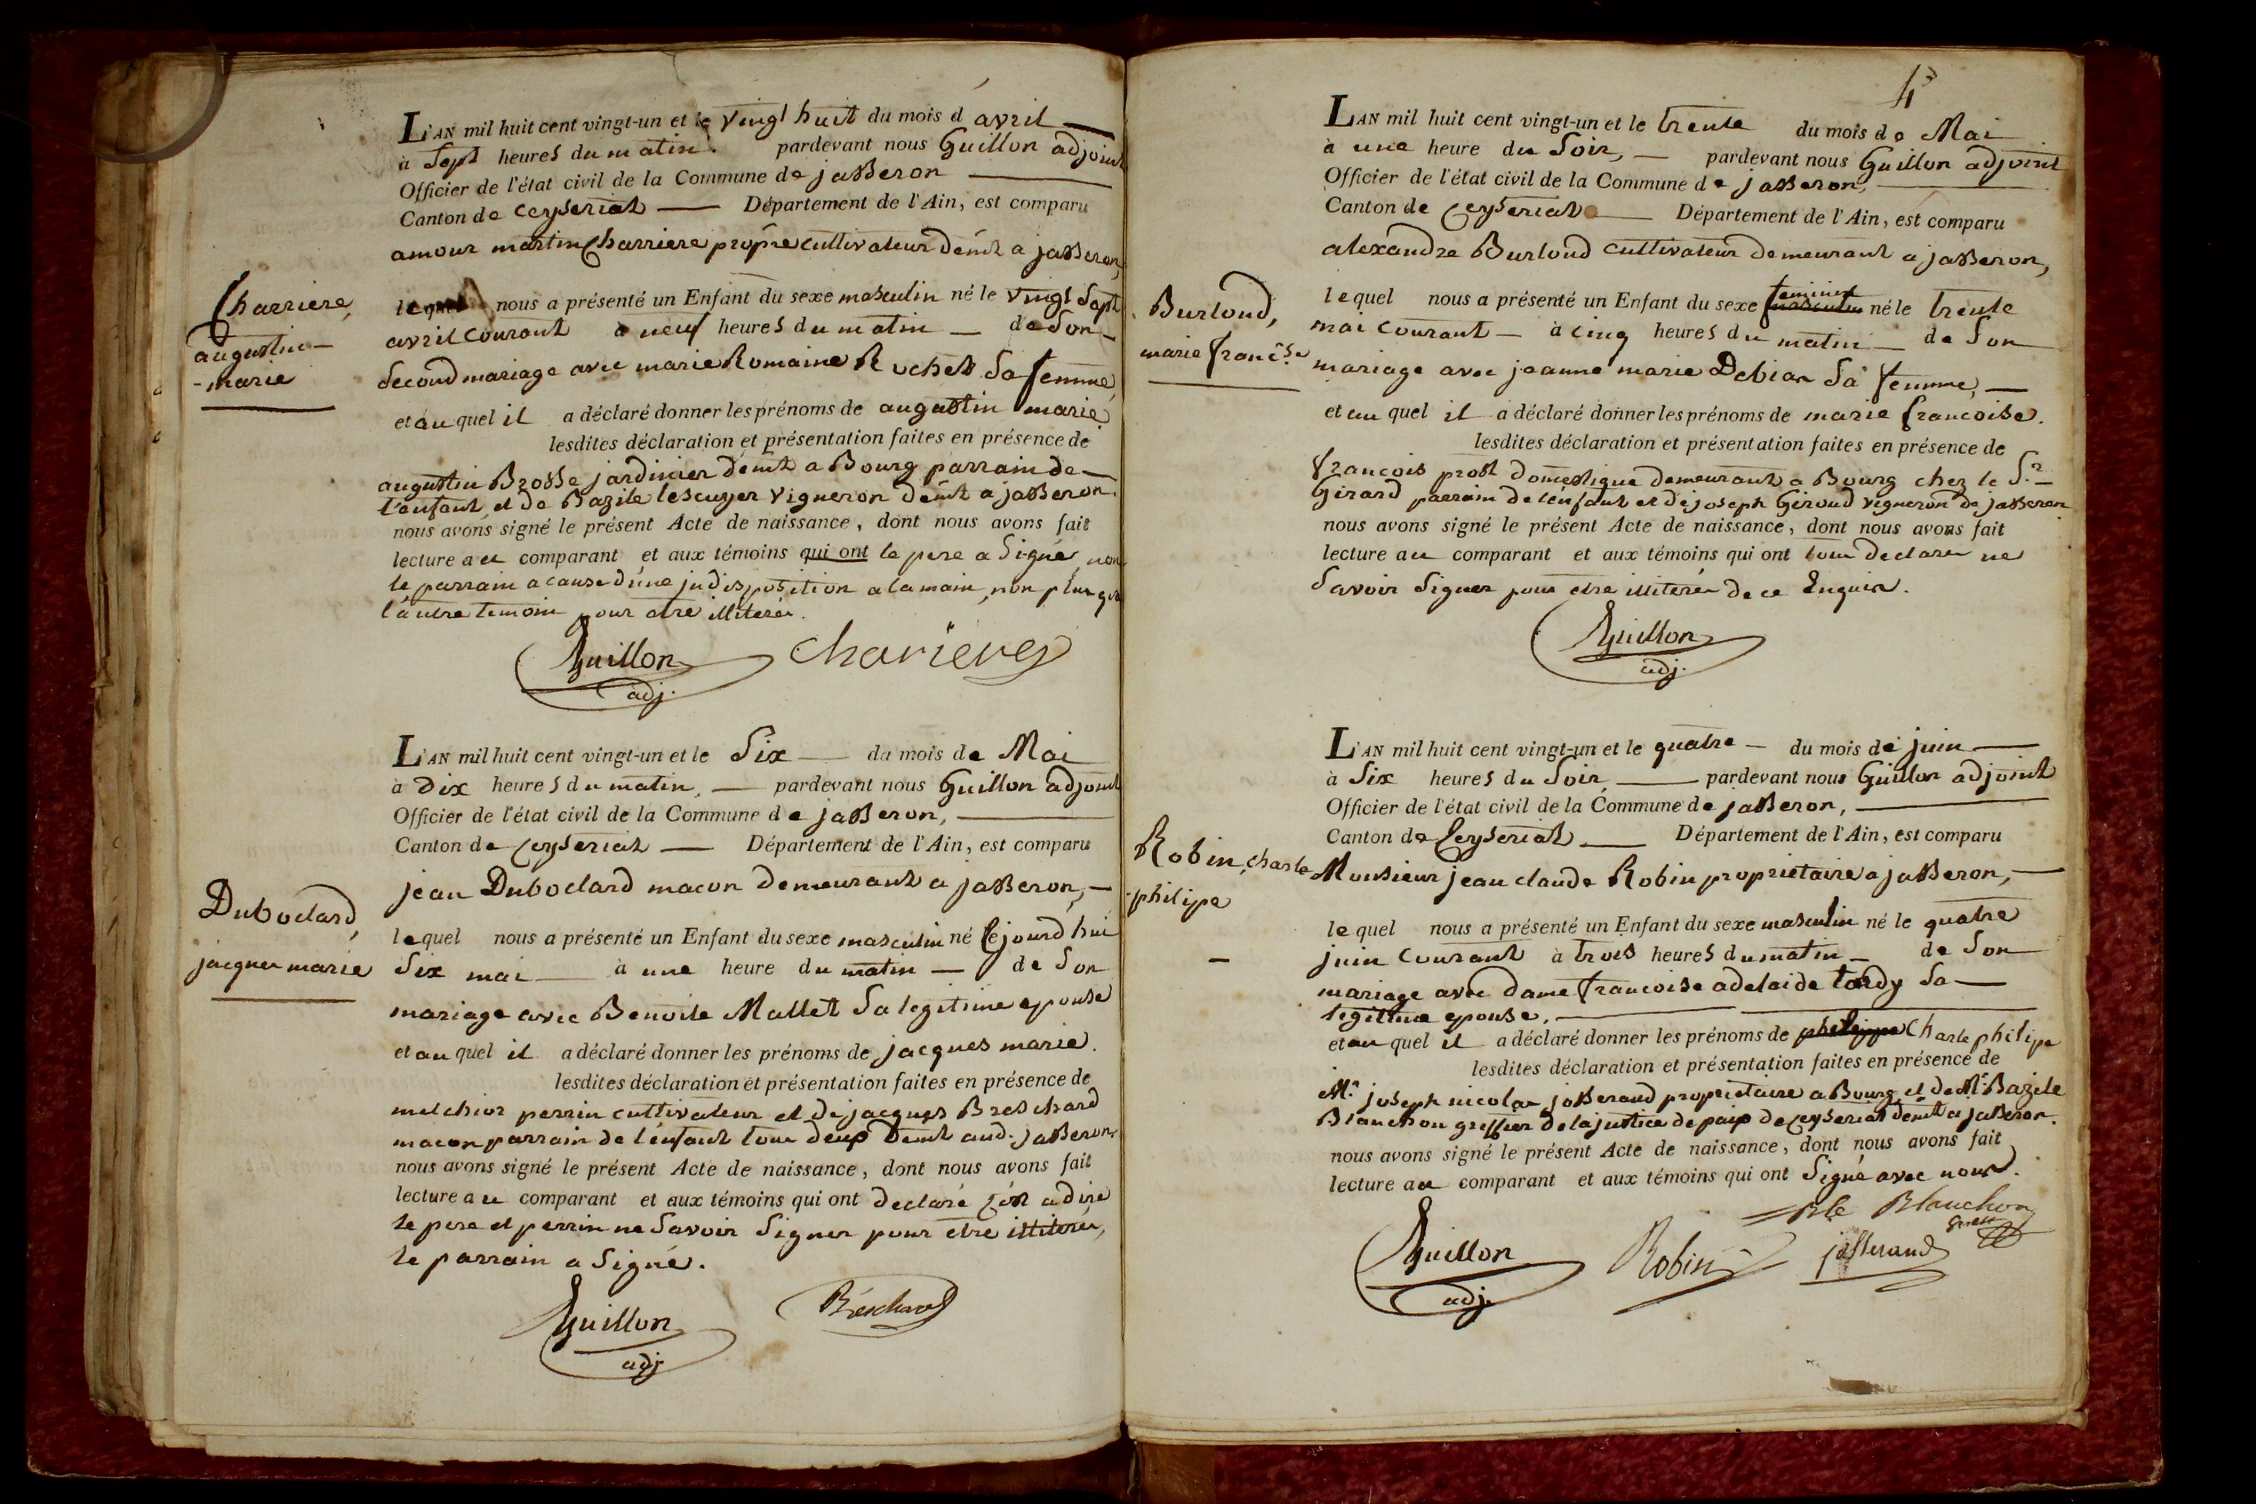 L'AN mil huit cent vingt-un et le vingt huit du mois d avril
à Sept heures du matin. pardevant nous Guillon adjoint
Officier de l'état civil de la Commune de jasseron
Canton de Ceyseriat Département de l'Ain, est comparu
amour martin Charriere propre cultivateur demt a jasseron,
Charriere,
augustin
marie
lequel nous a présenté un Enfant du sexe masculin né le vingt Sept
avril courant à neuf heures du matin de Son
Second mariage avec marie Romaine Rochet Sa femme,
et au quel il a déclaré donner les prénoms de augustin marie
lesdites déclaration et présentation faites en présence de
augustin Brosse jardinier demt a Bourg parrain de
l'enfant, et de Bazile lescuyer vigneron demt a jasseron.
nous avons signé le présent Acte de naissance, dont nous avons fait
lecture au comparant et aux témoins qui ont le pere a Signé, non
le parrain a cause d'une judisposition a la main, non plus que
l'autre temoin pour etre illiteré.
Guillon
adj.
charieres
L'AN mil huit cent vingt-un et le Six du mois de Mai
à Dix heures du matin, pardevant nous Guillon adjoint
Officier de l'état civil de la Commune de jasseron,
Canton de Ceyseriat Département de l'Ain, est comparu
jean Duboclard macon demeurant a jasseron,
Duboclard,
jacques marie
lequel nous a présenté un Enfant du sexe masculin né cejourd'hui
Six mai à une heure du matin de Son
mariage avec Benoite Mallet Sa legitime epouse
et au quel il a déclaré donner les prénoms de jacques marie.
lesdites déclaration et présentation faites en présence de
melchior perrin cultivateur et de jacques Breschard
macon parrain de l'enfant tous deux demt aud. jasseron
nous avons signé le présent Acte de naissance, dont nous avons fait
lecture au comparant et aux témoins qui ont declaré adire
le pere et perrin ne Savoir Signer pour etre illiteré,
le parrain a Signé.
Guillon
adj
Breschard
L'AN mil huit cent vingt-un et le trente du mois de Mai
à une heure du Soir, pardevant nous Guillon adjoint
Officier de l'état civil de la Commune de jasseron,
Canton de Ceyseriat Département de l'Ain, est comparu
alexandre Burloud cultivateur demeurant a jasseron,
Burloud,
marie francse
lequel nous a présenté un Enfant du sexe masculin feminin né le trente
mai courant à cinq heures du matin de Son
mariage avec jeanne marie Debiar Sa femme,
et au quel il a déclaré donner les prénoms de marie francoise.
lesdites déclaration et présentation faites en présence de
francois prost domestique demeurant a Bourg chez le Sr
Girard parrain de l'enfant et de joseph Giroud vigneron de jasseron
nous avons signé le présent Acte de naissance, dont nous avons fait
lecture au comparant et aux témoins qui ont tous declaré ne
Savoir Signer pour etre illiteré de ce Enquis.
Guillon
adj.
L'AN mil huit cent vingt-un et le quatre du mois de juin
à Six heures du Soir, pardevant nous Guillon adjoint
Officier de l'état civil de la Commune de jasseron,
Canton de Ceyseriat Département de l'Ain, est comparu
Monsieur jean claude Robin proprietaire a jasseron,
Robin, charle
philipe
lequel nous a présenté un Enfant du sexe masculin né le quatre
juin courant à trois heures du matin de Son
mariage avec dame francoise adelaide tardy Sa
legitime epouse.
et au quel il a déclaré donner les prénoms de philippe Charle philipe
lesdites déclaration et présentation faites en présence de
Mr. joseph nicolas josserand proprietaire a Bourg et de Mr. Bazile
Blanchon greffier de la justice de paix de Ceyseriat demt a jasseron.
nous avons signé le présent Acte de naissance, dont nous avons fait
lecture au comparant et aux témoins qui ont Signé avec nous.
Ble Blanchon
Greff
Guillon
adj.
Robin
josserand